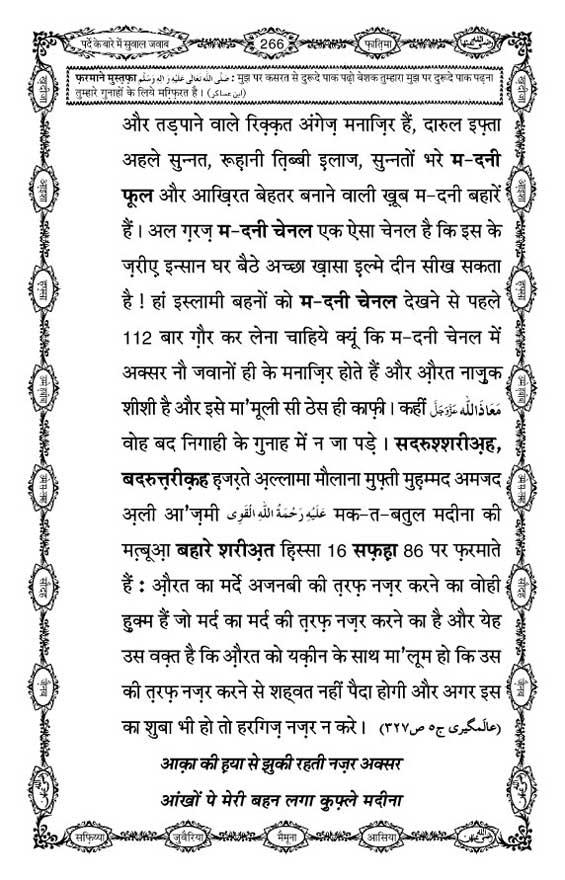 पर्दे के बारे में सुवाल जवाब
266
फ़ातिमा
फ़रमाने मुस्तफ़ा صَلَّى اللهُ تَعَالٰى عَلَيْهِ وَاٰلِهٖ وَسَلَّم : मुझ पर कसरत से दुरूदे पाक पढ़ो बेशक तुम्हारा मुझ पर दुरूदे पाक पढ़ना
तुम्हारे गुनाहों के लिये मग़्फ़िरत है। (ابن عساکر)
और तड़पाने वाले रिक़्क़त अंगेज़ मनाज़िर हैं, दारुल इफ़्ता
अहले सुन्नत, रूह़ानी त़िब्बी इ़लाज, सुन्नतों भरे म-दनी
फूल और आख़िरत बेहतर बनाने वाली ख़ूब म-दनी बहारें
हैं। अल ग़रज़ म-दनी चेनल एक ऐसा चेनल है कि इस के
ज़रीए इन्सान घर बैठे अच्छा ख़ासा इ़ल्मे दीन सीख सकता
है ! हां इस्लामी बहनों को म-दनी चेनल देखने से पहले
112 बार ग़ौर कर लेना चाहिये क्यूं कि म-दनी चेनल में
अक्सर नौ जवानों ही के मनाज़िर होते हैं और औ़रत नाज़ुक
शीशी है और इसे मा'मूली सी ठेस ही काफ़ी। कहीं مَعَاذَاللّٰه عَزَّوَجَلَّ
वोह बद निगाही के गुनाह में न जा पड़े। सदरुश्शरीअ़ह,
बदरुत़्त़रीक़ह ह़ज़रते अ़ल्लामा मौलाना मुफ़्ती मुह़म्मद अमजद
अ़ली आ'ज़मी عَلَيْهِ رَحْمَةُ اللّٰهِ الْقَوِى मक-त-बतुल मदीना की
मत़्बूआ़ बहारे शरीअ़त ह़िस्सा 16 सफ़ह़ा 86 पर फ़रमाते
हैं : औ़रत का मर्दे अजनबी की त़रफ़ नज़र करने का वोही
हुक्म है जो मर्द का मर्द की त़रफ़ नज़र करने का है और येह
उस वक़्त है कि औ़रत को यक़ीन के साथ मा'लूम हो कि उस
की त़रफ़ नज़र करने से शहवत नहीं पैदा होगी और अगर इस
का शुबा भी हो तो हरगिज़ नज़र न करे। (عالمگیری ج٥ ص٣٢٧)
आक़ा की ह़या से झुकी रहती नज़र अक्सर
आंखों पे मेरी बहन लगा क़ुफ़्ले मदीना
सफ़िय्या
जुवैरिया
मैमूना
आसिया